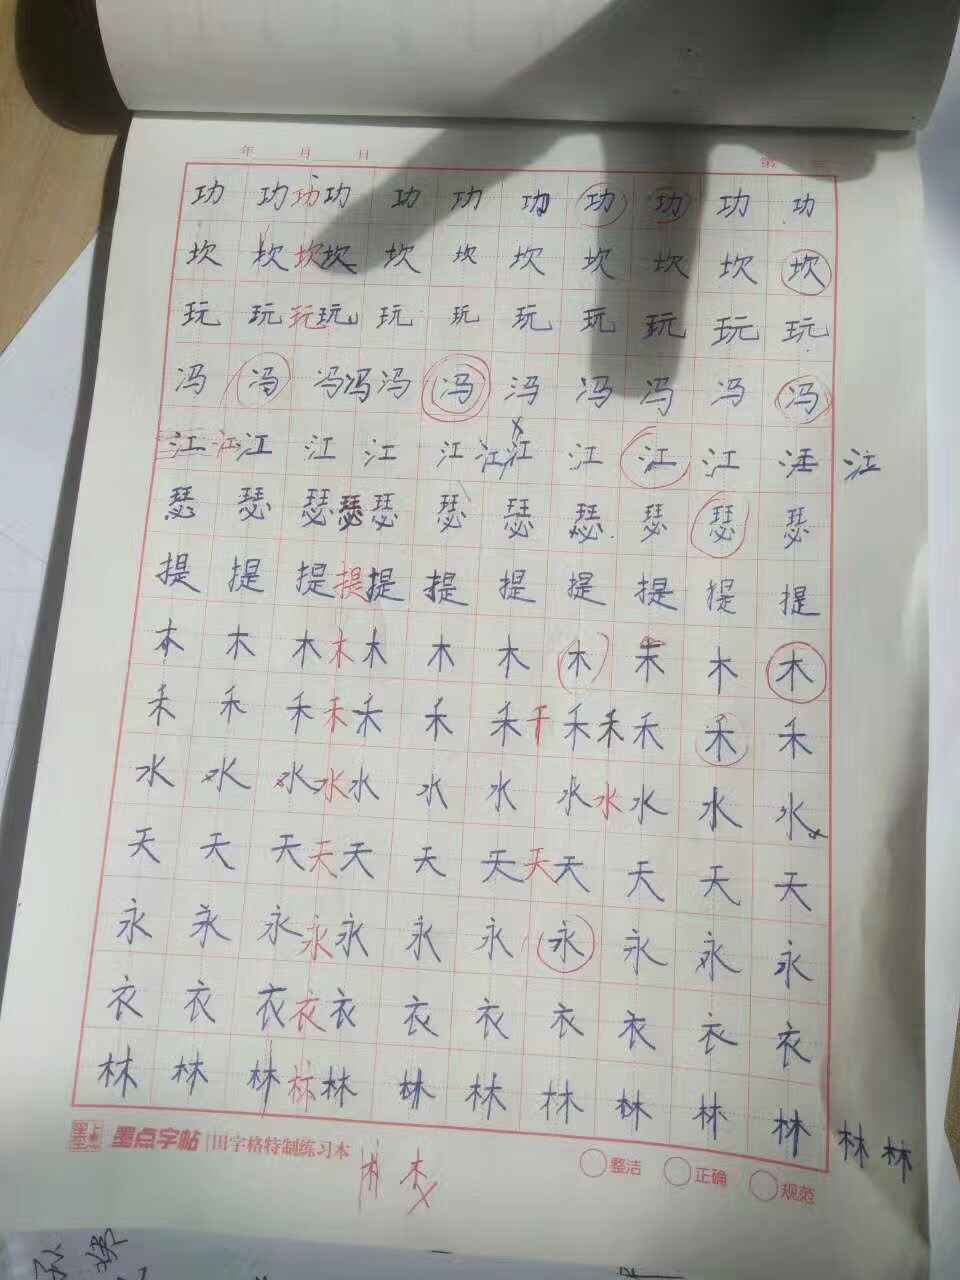 年 月 日 第
功 功 功 功 功 功 功 功 功 功 功
坎 坎 坎 坎 坎 坎 坎 坎 坎 坎 坎
玩 玩 玩 玩 玩 玩 玩 玩 玩 玩 玩
冯 冯 冯 冯 冯 冯 冯 冯 冯 冯 冯
江 江 江 江 江 江 江 江 江 江 江 江 江
瑟 瑟 瑟 瑟 瑟 瑟 瑟 瑟 瑟 瑟 瑟
提 提 提 提 提 提 提 提 提 提 提
木 木 木 木 木 木 木 木 木 木 木
禾 禾 禾 禾 禾 禾 禾 禾 禾 禾 禾 禾 禾
水 水 水 水 水 水 水 水 水 水 水 水
天 天 天 天 天 天 天 天 天 天 天 天
永 永 永 永 永 永 永 永 永 永 永
衣 衣 衣 衣 衣 衣 衣 衣 衣 衣 衣
林 林 林 林 林 林 林 林 林 林 林 林 林
墨点字帖 田字格特制练习本
整洁 正确 规范